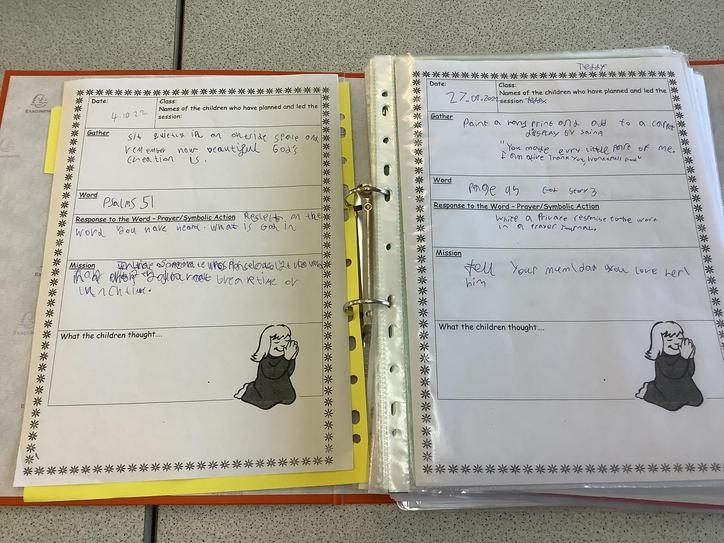 Date:
4.10.22
Class:
Names of the children who have planned and led the
session:
Gather
sit in an outside space and
remember how beautiful God's
creation is.
Word
Psalms 51
Response to the Word - Prayer/Symbolic Action Reflect on the
word you have heard. what is God in
Mission
breaktime or
lunchtime.
What the children thought....
Teddy
Date:
27.09.202
Class:
Names of the children who have planned and led the
session:
Gather
Paint a hand print and add to a
display by saying
"You made every little part of me,
Thank You, God"
Word
Page 45 God Story 3
Response to the Word - Prayer/Symbolic Action
write a Private response to the word
in a prayer Journal.
Mission
tell your mum/dad you love her/
him
What the children thought....